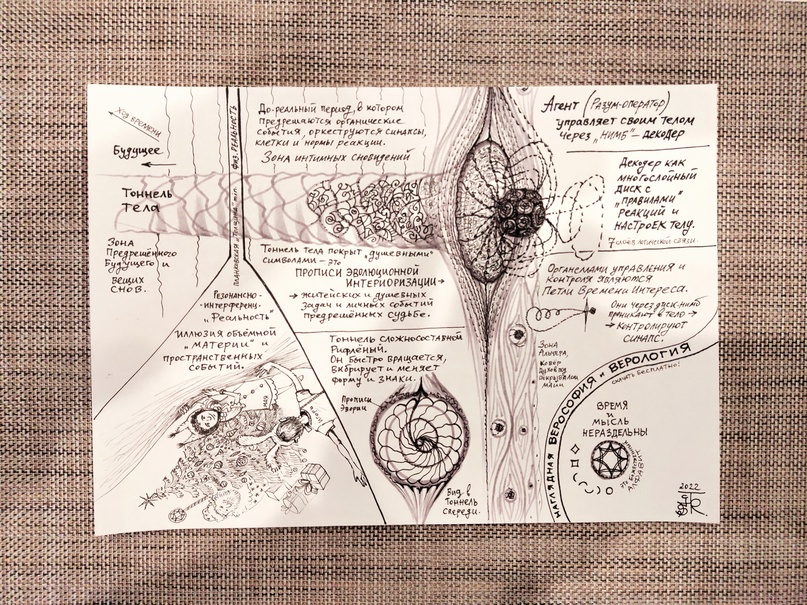 Ход времени
Будущее
Тоннель
Тела
Зона
Предрешённого
Будущего и
вещих
снов.
физ. РЕАЛЬНОСТЬ
До-реальный период, в котором
предрешаются органические
события, оркеструются синапсы,
клетки и нормы реакции.
Зона интимных сновидений
Тоннель тела покрыт „душевными"
символами — это
ПРОПИСИ ЭВОЛЮЦИОННОЙ
ИНТЕРИОРИЗАЦИИ →
→ житейских и душевных
задач и личных событий
предрешённых судьбе.
Резонансно-
-интерференц.
„Реальность"
Иллюзия объёмной
„материи" и
пространственных
событий.
Тоннель сложносоставной
Рифлёный.
Он быстро вращается,
вибрирует и меняет
форму и знаки.
Прописи
Эвории
Вид в
тоннель
спереди.
Агент (Разум-оператор)
управляет своим телом
через „НИМБ" — декодер
Декодер как
многослойный
диск с
„правилами"
реакций и
настроек телу.
7 слоёв логической связи.
Органеллами управления и
контроля являются
Петли Времени Интереса.
Они через диск-нимб
проникают в тело →
→ контролируют
синапс.
Зона
НАГЛЯДНАЯ ВЕРОСОФИЯ и ВЕРОЛОГИЯ
скачать бесплатно!
ВРЕМЯ
и
МЫСЛЬ
НЕРАЗДЕЛЬНЫ
АЛФАВИТ
2022